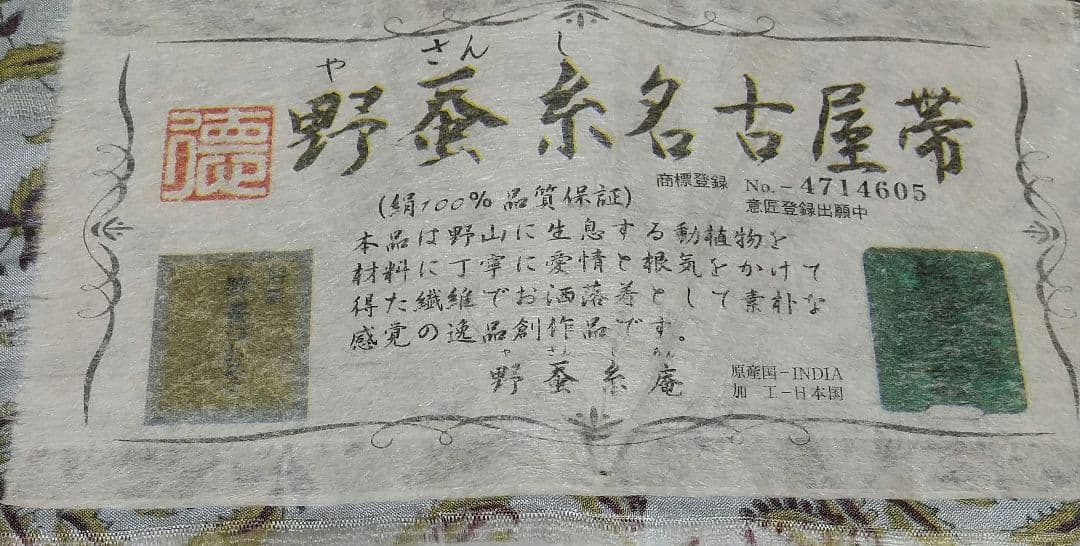 やさんし
野蚕糸名古屋帯
德
商標登録 No.-4714605
意匠登録出願中
(絹100%品質保証)
本品は野山に生息する動植物を
材料に丁寧に愛情と根気をかけて
得た繊維でお洒落着として素朴な
感覚の逸品創作品です。
やさんしあん
野蚕糸庵
原産国-INDIA
加工-日本国